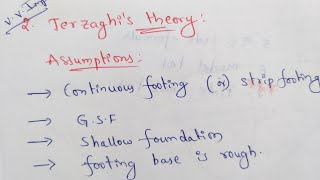 V.V. Imp
2. Terzaghi's theory:
Assumptions:
→ Continuous footing (or) strip footing
→ G.S.F
→ Shallow foundation
→ footing base is rough.